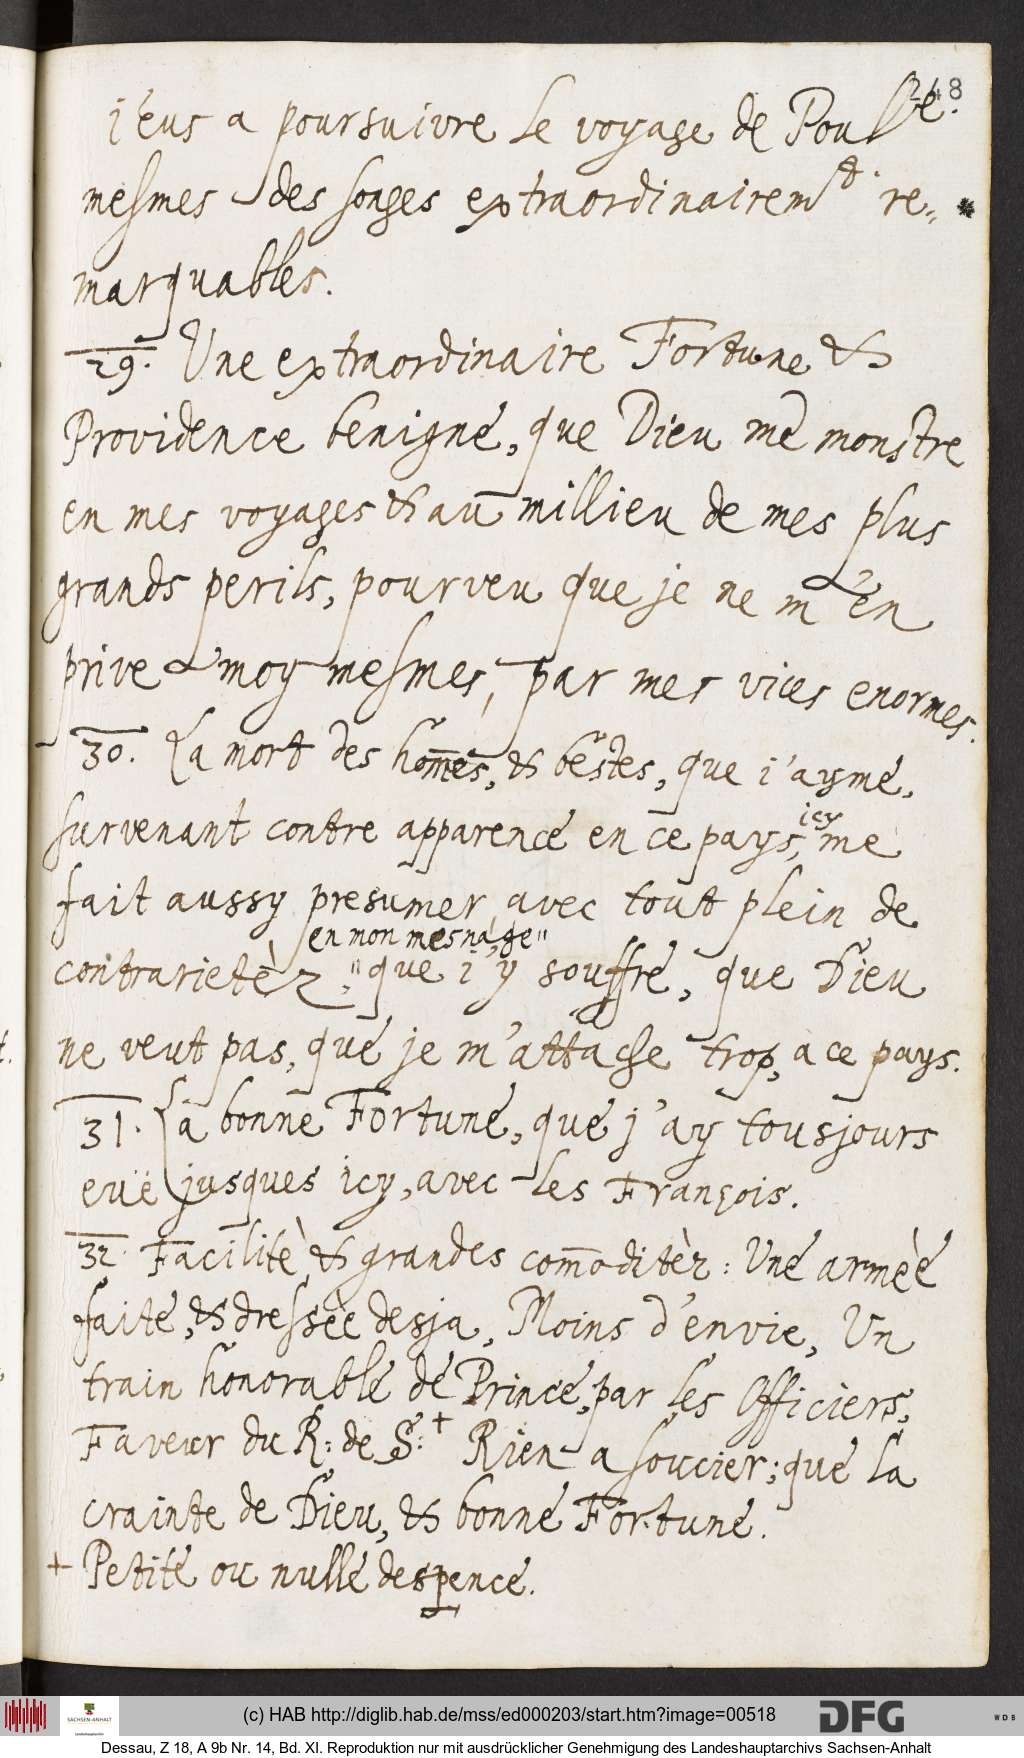 248
j'eus a poursuivre le voyage de Poulle.
mesmes des songes extraordinairemt. re=
marquables.
29. Une extraordinaire Fortune &
Providence benigne, que Dieu me monstre
en mes voyages & au millieu de mes plus
grands perils, pourveu que je ne m'en
prive moy mesmes, par mes vices enormes.
30. La mort des hommes, & bestes, que i'ayme,
icy
survenant contre apparence en ce pays, me
fait aussy presumer, avec tout plein de
en mon mesnage"
contrarietèz," que i'y souffre, que Dieu
ne veut pas, que je m'attache trop, a ce pays.
31. La bonne Fortune, que j'ay tousjours
euë jusques icy, avec les François.
32. Facilitè, & grandes com̅oditèz: Une armèe
faite, & dressèe desja, Moins d'envie, Un
train honorable de Prince, par les Officiers,
Faveur du R: de S:+ Rien a soucier; que la
crainte de Dieu, & bonne Fortune.
+ Petite ou nulle despence.
SACHSEN-ANHALT
Landeshauptarchiv
(c) HAB http://diglib.hab.de/mss/ed000203/start.htm?image=00518
DFG
WDB
Dessau, Z 18, A 9b Nr. 14, Bd. XI. Reproduktion nur mit ausdrücklicher Genehmigung des Landeshauptarchivs Sachsen-Anhalt